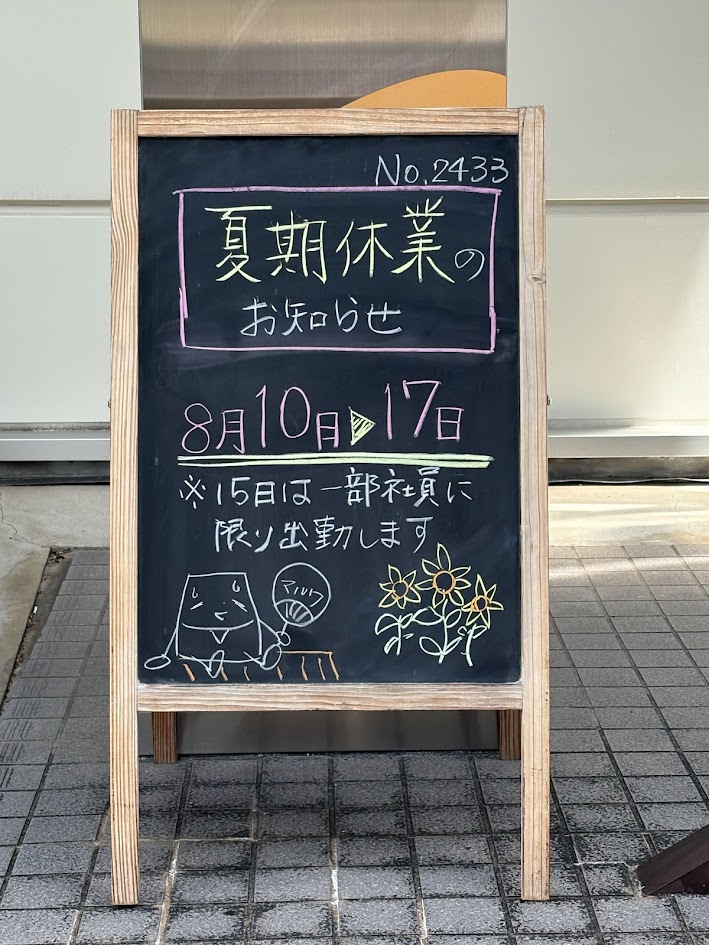 No.2433
夏期休業の
お知らせ
8月10日▶17日
※15日は一部社員に
限り出勤します
マルワ